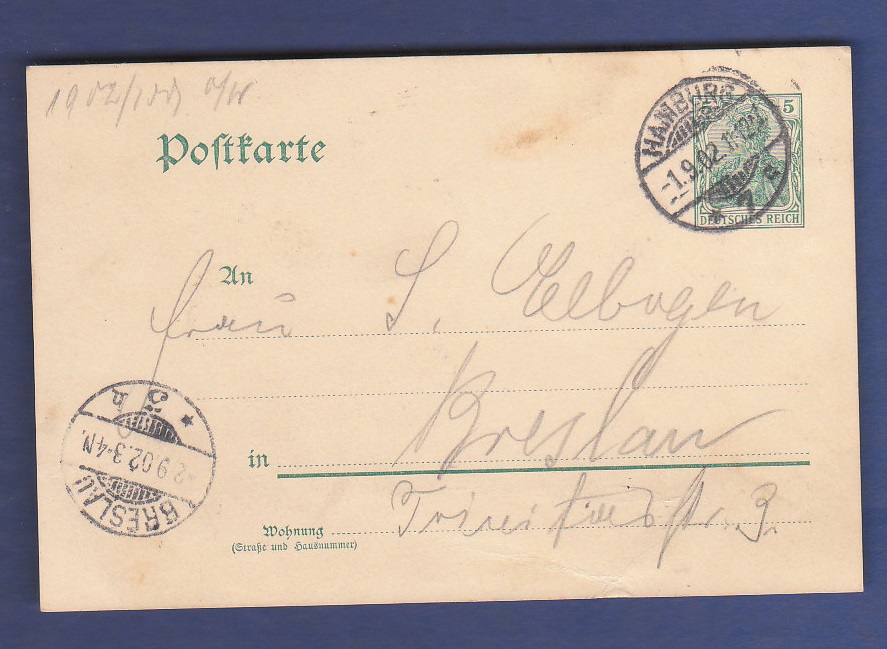 1902
Postkarte
HAMBURG
-1.9.02.11-12V
* 7 c
5
DEUTSCHES REICH
An
Frau S. Elbogen
in Breslau
Wohnung
(Straße und Hausnummer)
Trinitasstr. 3.
BRESLAU
-2.9.02.3-4N.